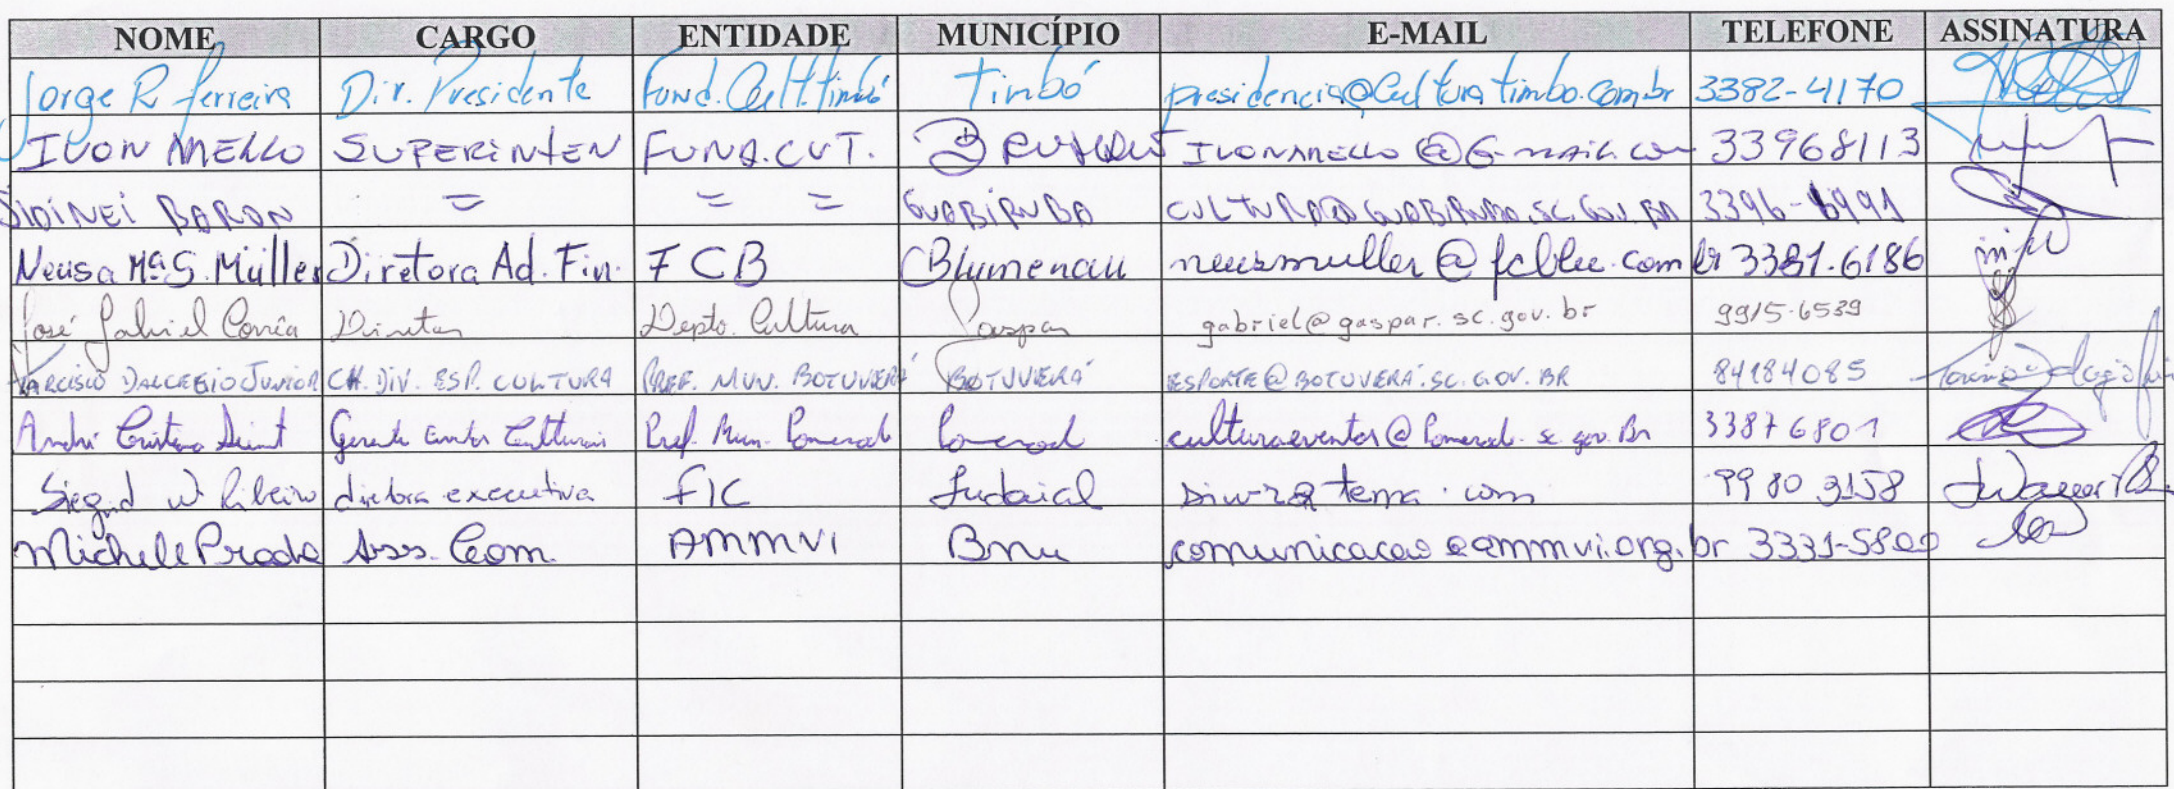 NOME CARGO ENTIDADE MUNICÍPIO E-MAIL TELEFONE ASSINATURA
Jorge R Ferreira Dir. Presidente Fund. Cult. timbó Timbó presidencia@culturatimbo.com.br 3382-4170
IVON MELLO SUPERINTEN FUND. CUT. IVONMELLO @G-mail.com 33968113
SIDINEI BARON = = = GUABIRUBA CULTURA@GUABIRUBA.SC.GOV.BR 3396-
Neusa Mª S. Müller Diretora Ad. Fin. FCB Blumenau neusamuller@fcblu.com.br 3381.6186
José Gabriel Corrêa Diretor Depto. Cultura Gaspar gabriel@gaspar.sc.gov.br 9915-6539
TARCISIO DALCEGIO JUNIOR CH. DIV. ESP. CULTURA PREF. MUN. BOTUVERÁ BOTUVERÁ ESPORTE@BOTUVERÁ.SC.GOV.BR 84184085
André Cristiano Gerente Pref. Mun. Pomerode Pomerode culturaeventos@Pomerode.sc.gov.Br 33876801
W. Ribeiro diretora executiva FIC Indaial 99 80 3158
Michele Prada Ass. Com. AMMVI Bnu comunicacao@ammvi.org.br 3331-5800